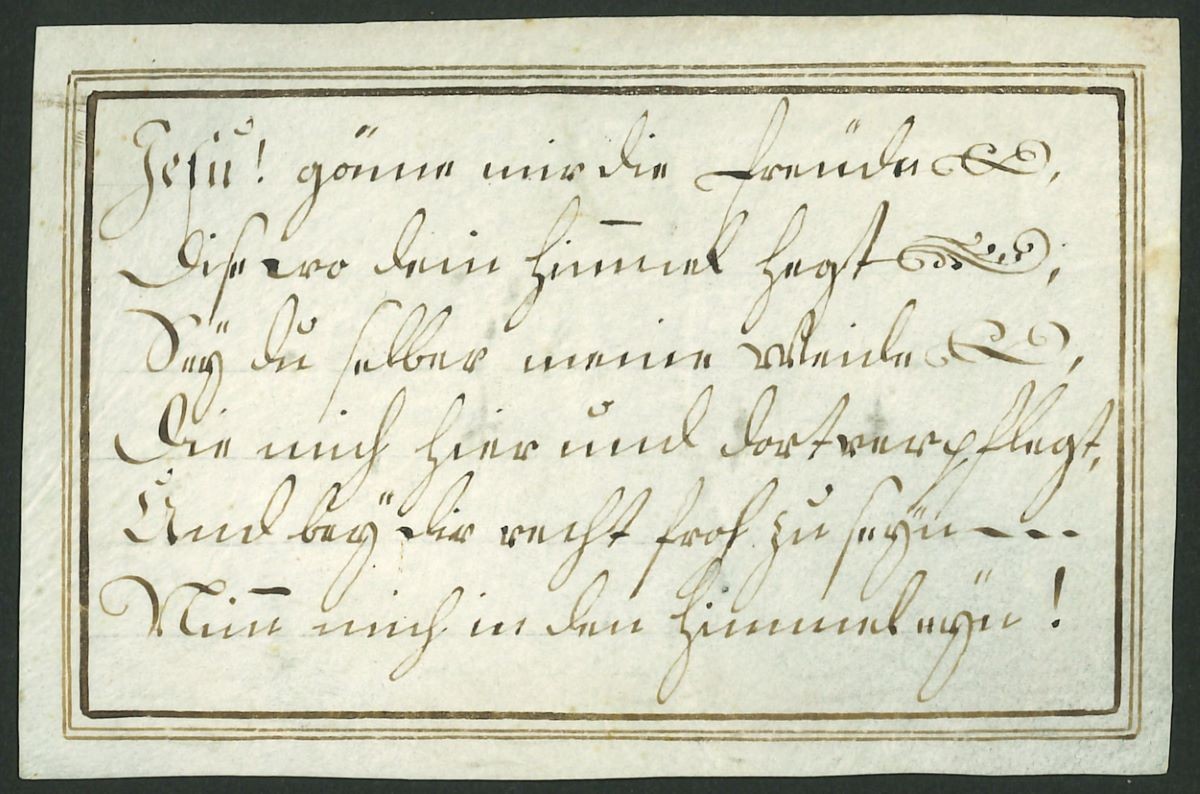 Jesu! gönne mir die Freüde,
Dise wo dein Himmel hegt,
Seÿ du selber meine Weide,
Die mich hier und dort verpflegt,
Und beÿ dir recht froh zu seÿn - - -
Nim̄ mich in den Himmel eÿn!